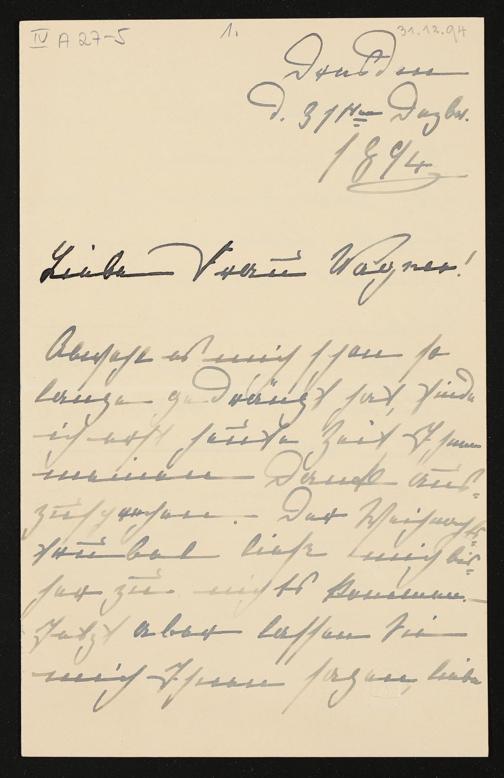 IV A 27-5
1.
31.12.94
Dresden
d. 31ten Dezbr.
1894
Liebe Frau Wagner!
Obwohl es mich schon so
lange gedrängt hat, finde
ich erst heute Zeit Ihnen
meinen Dank aus-
zusprechen. Der Weihnachts-
trubel ließ mich bis-
her zu nichts kommen. –
Jetzt aber lassen Sie
mich Ihnen sagen, liebe